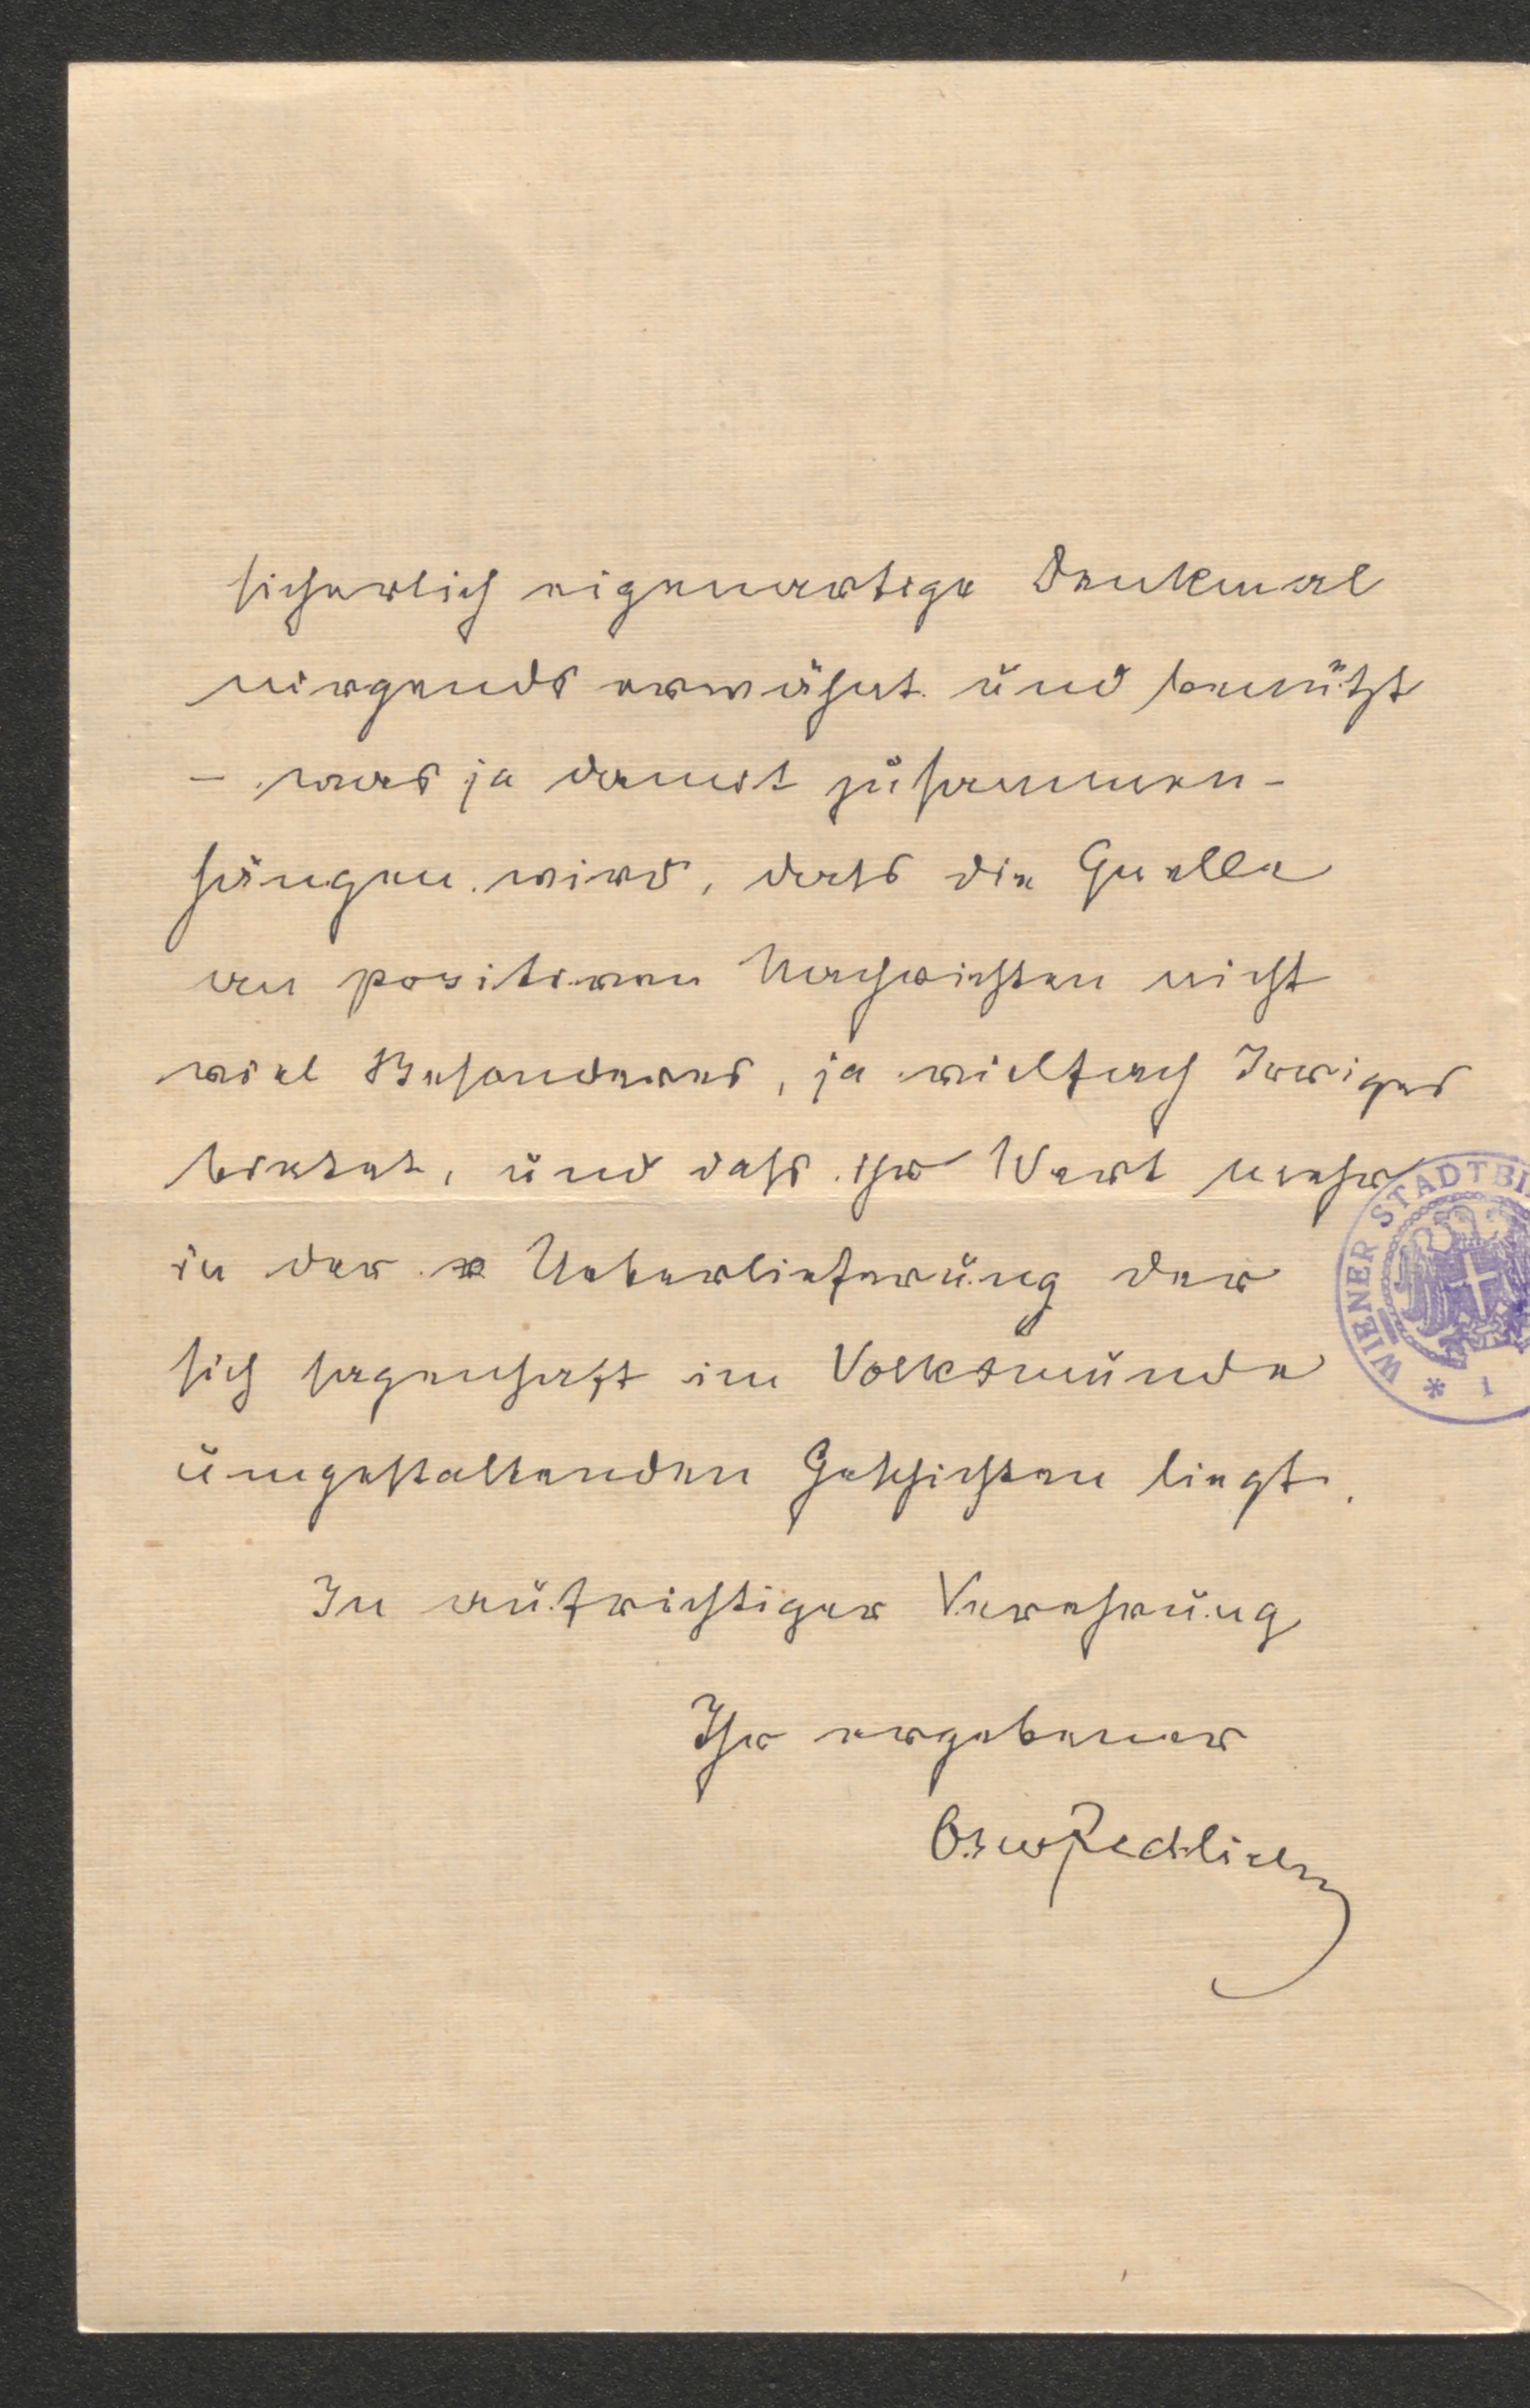 sicherlich eigenartige Denkmal
nirgends erwähnt und benützt
– was ja damit zusammen-
hängen wird, dass die Quelle
an positiven Nachrichten nicht
viel Besonderes, ja vielfach Irriges
bietet, und dass ihr Wert mehr
in der Ueberlieferung der
sich sagenhaft im Volksmunde
umgestaltenden Geschichten liegt.
In aufrichtiger Verehrung
Ihr ergebener
OswRedlich
WIENER STADTBI